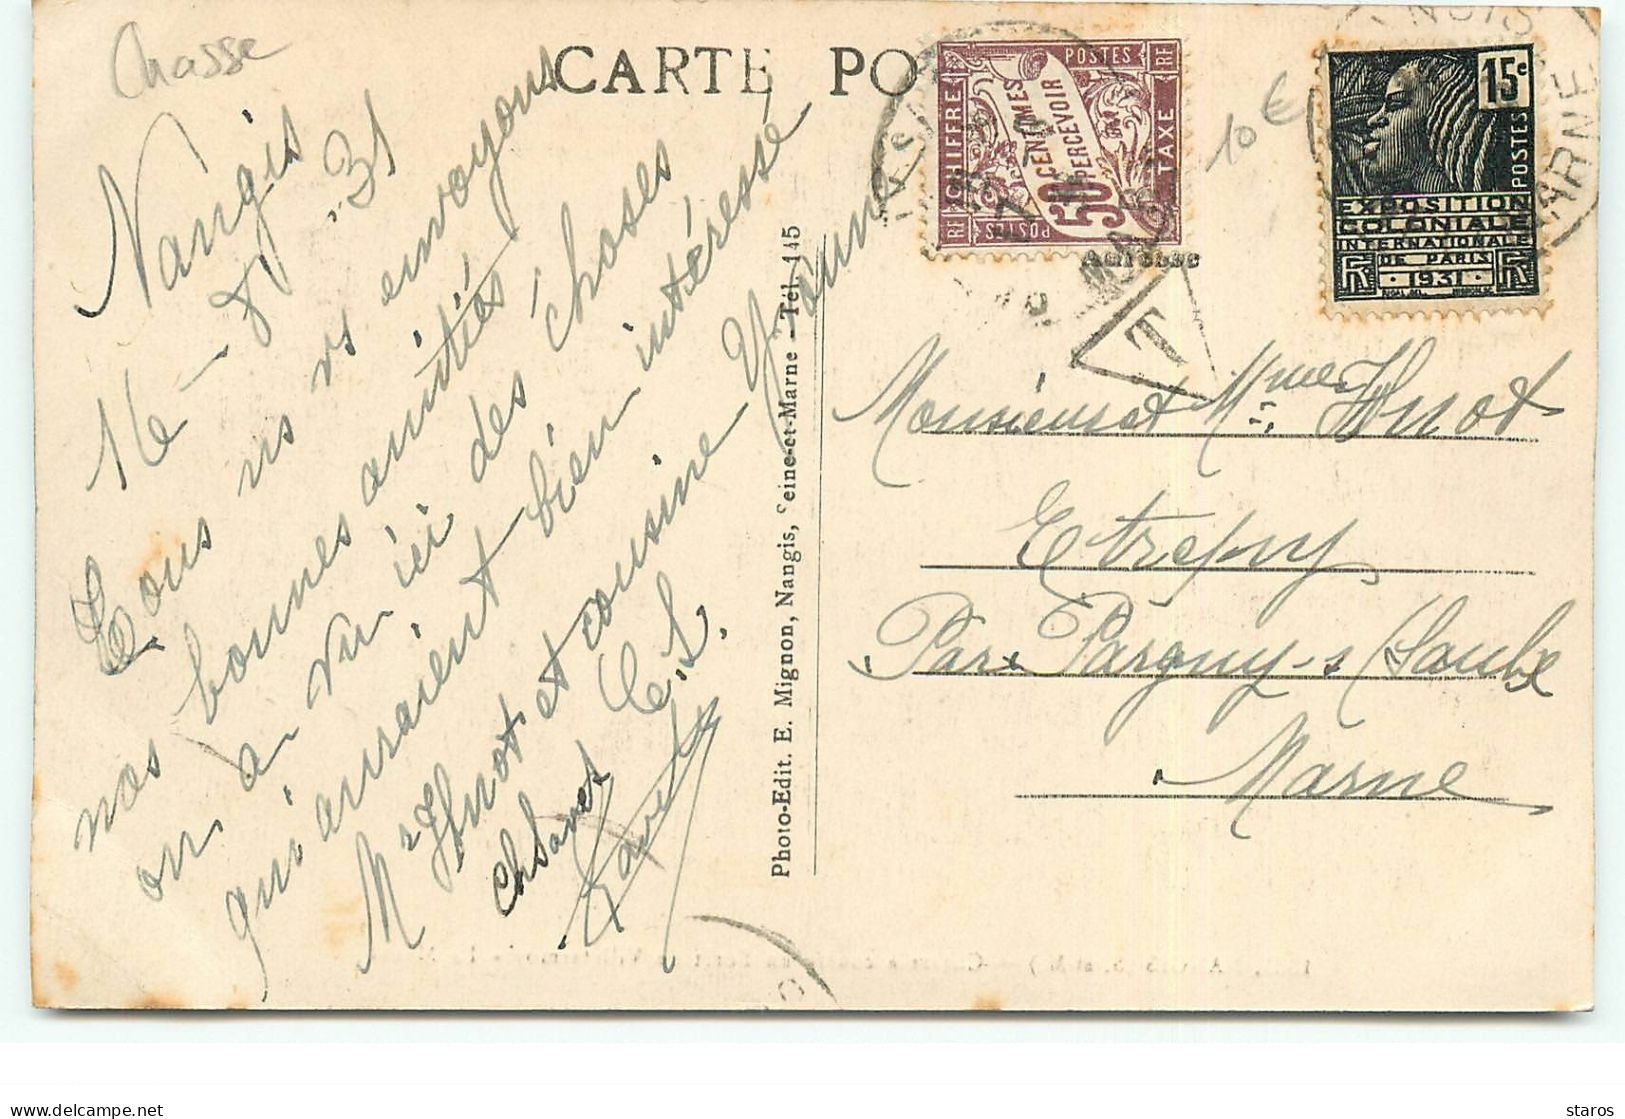 Chasse
CARTE PO
CHIFFRE
TAXE
POSTES
RF
50 CENTIMES
A PERCEVOIR
10 €
15c
POSTES
EXPOSITION
COLONIALE
INTERNATIONALE
DE PARIS
1931
RF
MARNE
Adresse
T
Nangis
16-8-31
Tous ns vs envoyons
nos bonnes amitiés
on a vu ici des choses
qui auraient bien intéressé
Mr Huot et cousine Yvonne
Photo-Edit. E. Mignon, Nangis, Seine-et-Marne - Tél. 145
Monsieur et Mme Huot
Etrepy
Par Pargny-s/Saulx
Marne
staros
delcampe.net